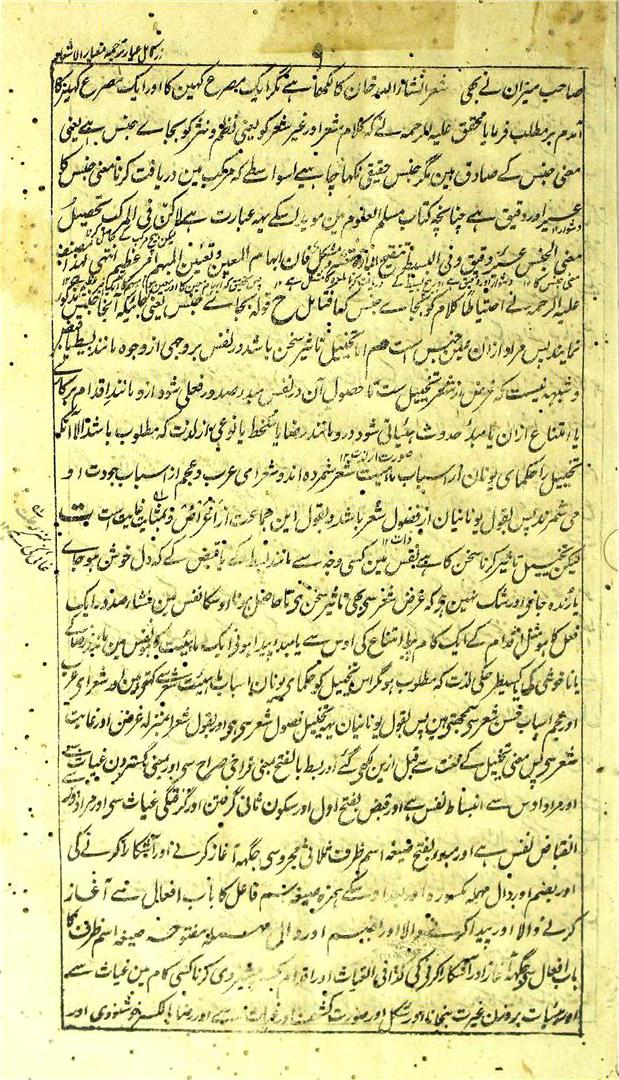 ۹
صاحب میزان نے بھی شعر انشاء اللہ خان کا لکھا ہے مگر ایک مصرع کہین کا اور ایک مصرع کہین کا
آمدم بر مطلب فرمایا محقق علیہ الرحمہ نے کہ کلام شعر اور غیر شعر کو یعنی نظم و نثر کو بجاے جنس ہے یعنی
معنی جنس کے صادق ہین مگر جنس حقیقی نکہا چاہیے اسواسطے کہ مرکب مین دریافت کرنا معنی جنس کا
عسیر اور دقیق ہے چنانچہ کتاب مسلم العلوم مین موید اسکے یہہ عبارت ہے لاکن فی المرکب تحصیل
معنی الجنس عسیر و دقیق وفی البسیط تنقیح المادہ مشکل فان ابہام المعین و تعیین المبہم امر عظیم انتہی لہذا مصنف
علیہ الرحمہ نے احتیاطاً کلام کو بجاے جنس کہا فتامل قولہ بجاے جنس یعنی
نمایند پس مراد ازان عین جنس است هم اما تخییل تاثیر سخن باشد در نفس بر وجهی از وجوه مانند بسط یا قبض
و شبهه نیست که غرض از شعر تخییل ست تا حصول آن در نفس مبدء صدور فعلی شود ازو مانند اقدام بر کاری
یا امتناع ازان یا مبدء حدوث هیئاتی شود درو مانند رضا یا سخط یا نوعی از لذت که مطلوب باشد الا آنکه
تخییل را حکمای یونان از اسباب ماهیت شعر شمرده اند و شعرای عرب و عجم از اسباب جودت او
می شمرند پس بقول یونانیان از فصول شعر باشد و بقول این جماعت از اغراض و بمثابت غایت است
لیکن تخییل تاثیر کرنا سخن کا ہے نفس مین کسی وجہ سے مانند انبساط کے یا قبض کے کہ دل خوش ہو جاے
یا رندہ جاے اور شک نہین ہو کہ غرض شعر سے بھی تاثیر سخن ہی تا حاصل ہونا اوسکا نفس مین منشاء صدور ایک
فعل کا ہو مثل اقدام کے ایک کام پر یا امتناع کی اوس سے یا مبدء پیدا ہونی ایک ہیئت کا ہو نفس مین مانند رضا کے
یا ناخوشی کی کسیطرحکی لذت کہ مطلوب ہو مگر اس تخییل کو حکمای یونان اسباب ماہیت شعر سے کہتے ہین اور شعرای عرب
اور عجم اسباب حسن شعر سے سمجھتے ہین پس بقول یونانیان یہہ تخییل فصول شعر سے ہی اور بقول شعرا بمنزلہ غرض اور غایت
شعر سے ہے پس معنی تخییل کے قبل ازین لکھے گئے اور بسط بالفتح بمعنی فراخی صراح سے اور بمعنی گستردن غیاث سے
اور مراد اوس سے انبساط نفس ہے اور قبض بفتح اول اور سکون ثانی گرفتن اور گرفتگی غیاث سے اور مراد
انقباض نفس ہے اور مبدء بفتح صیغہ اسم ظرف ثلاثی مجرد سے جگہہ آغاز کرنے اور آشکارا کرنے کی
اور بضم اور دال مہملہ مکسورہ اور بعد اوسکے ہمزہ صیغہ اسم فاعل کا باب افعال سے آغاز
کرنے والا اور پیدا کرنے والا اور بضم اور دال مہملہ مفتوحہ صیغہ اسم ظرف کا
باب افعال سے جگہہ آغاز اور آشکارا کرنے کی کذا فی الغیاث اور اقدام کسی کام مین غیاث سے
اور ہیئات صورت غیاث سے اور رضا بالکسر خوشنودی اور